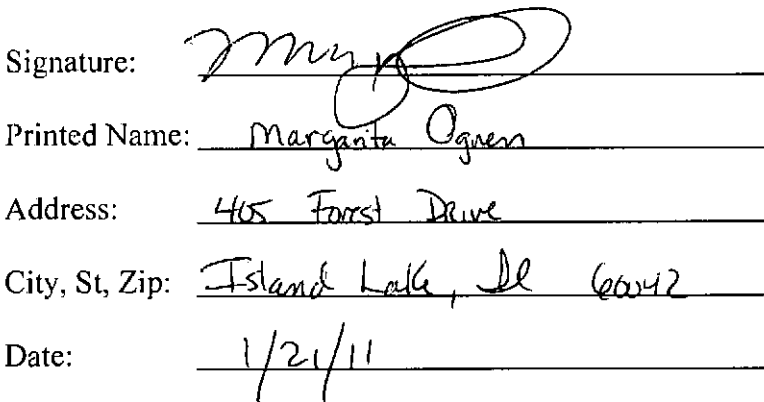 Signature:
Printed Name: Margarita Ognen
Address: 405 Forest Drive
City, St, Zip: Island Lake, Il 60042
Date: 1/21/11